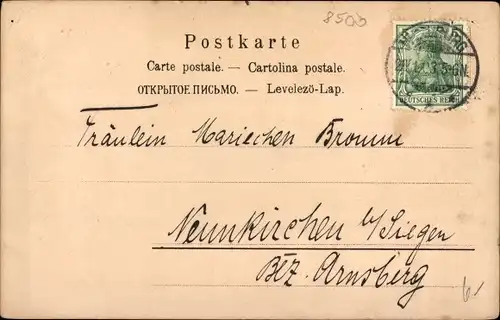 8500
Postkarte
Carte postale. — Cartolina postale.
ОТКРЫТОЕ ПИСЬМО. — Levelező-Lap.
DEUTSCHES REICH
Fräulein Mariechen Bromm
Neunkirchen b/Siegen
Bez. Arnsberg